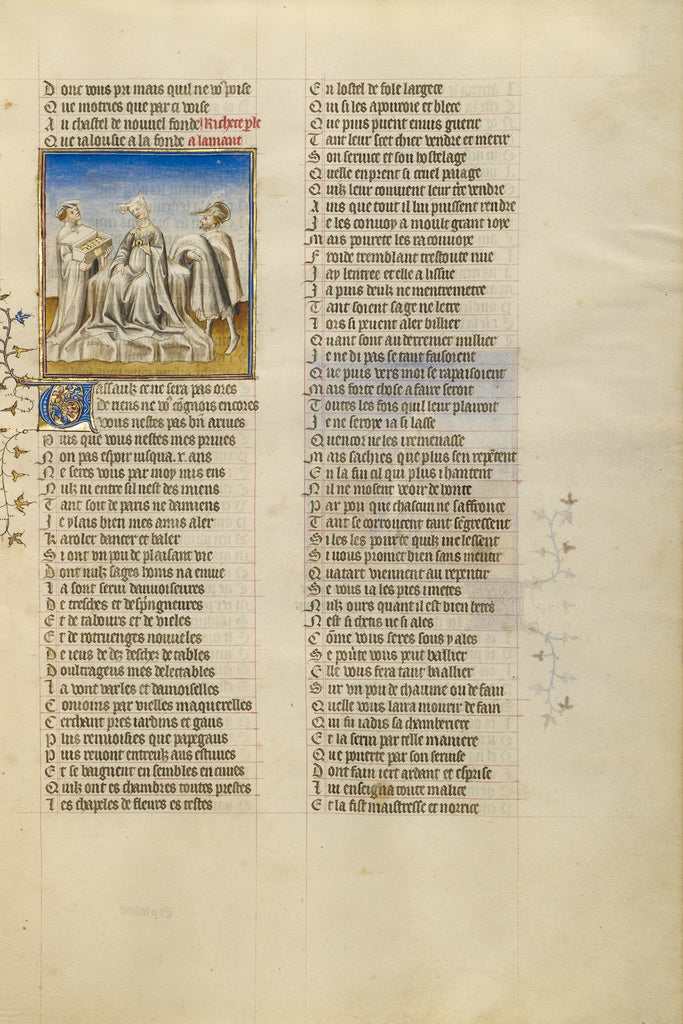 Donc vous pri mais quil ne vo9 poise
Que motries que par ci voise
Au chastel de nouvel fonde Richece ple
Que ialousie a la fonde a lamant
assauls ce ne sera pas ores
De riens ne vo9 cognois encores
vous nestes pas bn arives
Puis que vous nestes mes prives
Non pas espoir iusqua .x. ans
Ne seres vous par moy mis ens
Nulz ni entre sil nest des miens
Tant soit de paris ne damiens
Je y lais bien mes amis aler
Karoler dancer et baler
Si ont un pou de plaisant vie
Dont nulz sages homs na envie
La sont servi damoiseures
De tresches et despingneures
Et de tabours et de vieles
Et de rotruenges nouveles
De ieus de dez desches de tables
Doultrageus mes delectables
La vont varles et damoiselles
Conioins par vielles maquerelles
Cerchant pres iardins et gaus
Plus renvoisies que papegaus
Puis revont entreulz aus estuves
Et se baignent ensembles en cuves
Quilz ont es chambres toutes prestes
Les chapeles de fleurs es testes
En lostel de fole largece
Qui si les apovroie et blece
Que puis puent envis guerir
Tant leur scet chier vendre et merir
Son service et son hostelage
Quelle en prent si cruel paiage
Quilz leur convient leur tre vendre
Ains que tout il lui puissent rendre
Je les convoy a moult grant ioye
Mais povrete les raconvoye
Froide tremblant trestoute nue
Jay lentree et elle a lissue
Ja puis deulz ne mentremetre
Tant soient sage ne letre
Lors si pevent aler billier
Quant sont au derrenier millier
Je ne di pas se tant faisoient
Que puis vers moi se rapaisoient
Mais forte chose a faire seroit
Toutes les fois quil leur plairoit
Je ne seroye ia si lasse
Quencor ne les iremenasse
Mais sachies que plus sen repetent
En la fin cil qui plus i hantent
Nil ne mosent veoir de honte
Par pou que chascun ne saffronce
Tant se corroucent tant segressent
Si les les pour ce quilz me lessent
Si vous promet bien sans mentir
Qua tart viennent au repentir
Se vous ia les pies i metes
Nulz ours quant il est bien betes
Nest si chetis ne si ales
Come vous seres sous y ales
Se povrte vous peut ballier
Elle vous fera tant baallier
Sur un pou de chaume ou de fain
Quelle vous laira mourir de fain
Qui fu iadis sa chamberiere
Et la servi par telle maniere
Que poverte par son servise
Dont fain iert ardant et esprise
Lui enseigna toute malice
Et la fist maistresse et norrice